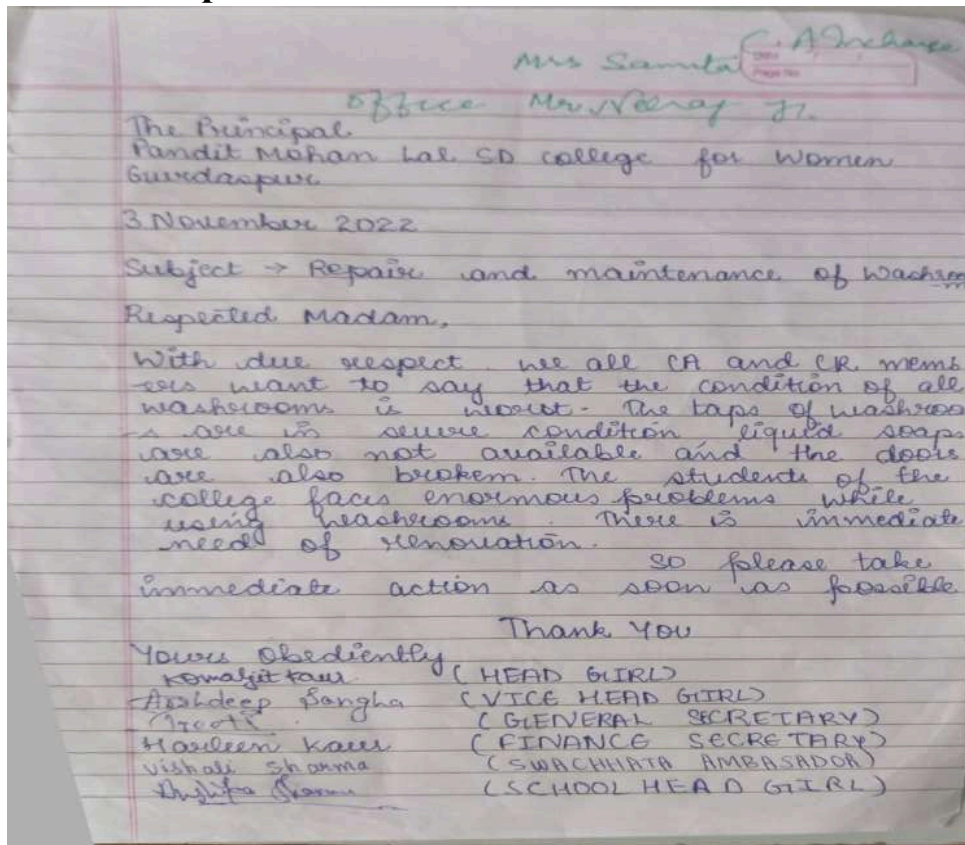 C. A Incharge
Mrs Samita
Date
Page No.
office Mr. Neeraj Jr.
The Principal
Pandit Mohan Lal SD college for women
Gurdaspur
3 November 2022
Subject → Repair and maintenance of washroom
Respected Madam,
With due respect we all CA and CR memb
ers want to say that the condition of all
washrooms is worst. The taps of washroo
s are in severe condition liquid soaps
are also not available and the doors
are also broken. The students of the
college faces enormous problems while
using washrooms. There is immediate
need of renovation.
so please take
immediate action as soon as possible
Thank You
Yours Obediently
Komaljit Kaur (HEAD GIRL)
Arshdeep Sangha (VICE HEAD GIRL)
(GENERAL SECRETARY)
Harleen Kaur (FINANCE SECRETARY)
Vishali Sharma (SWACHHATA AMBASADOR)
Sharma (SCHOOL HEAD GIRL)